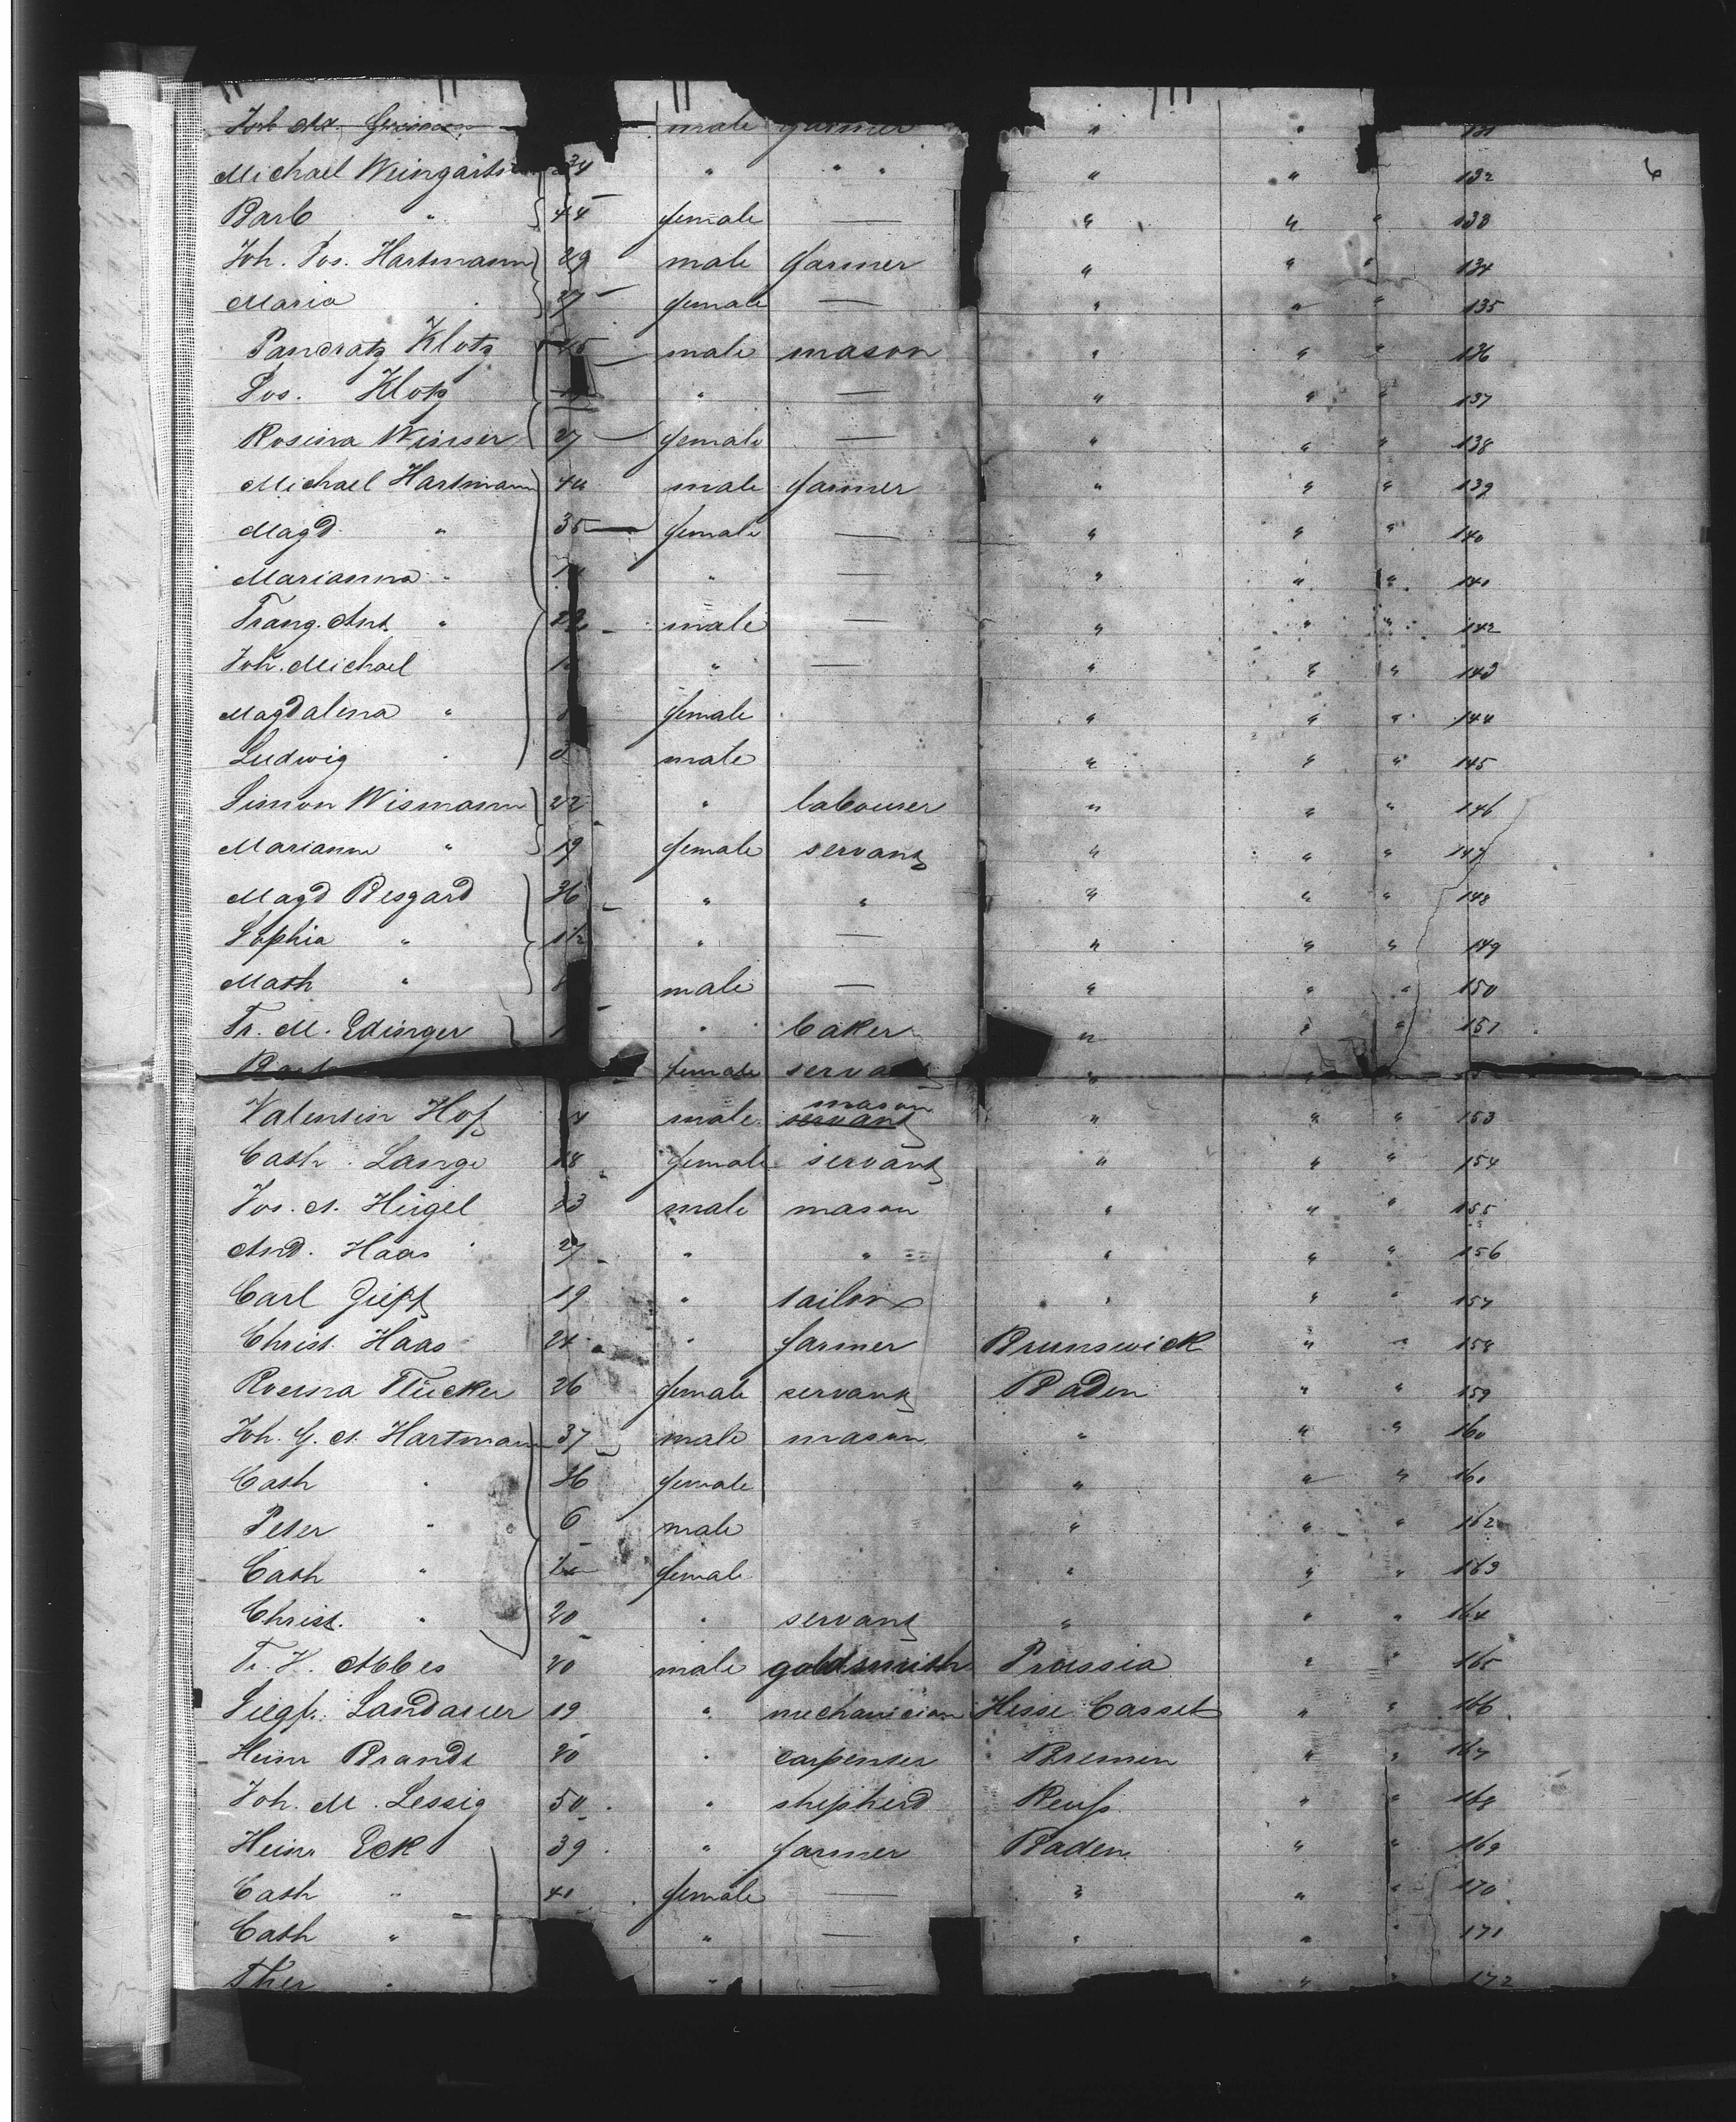 male farmer " " 131
Michael Weingärtner 34 " " " " " 132
Barb " 44 female — " " " 133
Joh. Jos. Hartmann 29 male farmer " " " 134
Maria 27 female — " " " 135
Pancratz Klotz male mason " " " 136
Jos. Klotz " — " " " 137
Rosina Winser 27 female — " " " 138
Michael Hartmann 40 male farmer " " " 139
Magd " 35 female — " " " 140
Marianna " " — " " " 141
Franz. Ant. " male — " " " 142
Joh. Michael " — " " " 143
Magdalena " female " " " 144
Ludwig " male " " " 145
Simon Wismann 22 " labourer " " " 146
Marianna " 19 female servant " " " 147
Magd Besgard 36 " " " " " 148
Sophia " " — " " " 149
Math " 8 male — " " " 150
Fr. M. Edinger " baker " " " 151
female servant " "
Valentin Hof male mason servant " " " 153
Cath. Lange 18 female servant " " " 154
Jos. A. Heigel 23 male mason " " " 155
And. Haas 27 " " " " " 156
Carl 19 " tailor " " " 157
Christ. Haas 24 " farmer Brunswick " " 158
Rosina Flücker 26 female servant Baden " " 159
Joh. G. A. Hartmann 37 male mason " " " 160
Cath " 36 female " " " 161
Peter " 6 male " " " 162
Cath " female " " " 163
Christ. " 20 " servant " " " 164
Fr. H. Abbes 20 male goldsmith Prussia " " 165
Siegfr. Landauer 19 " mechanician Hesse Cassel " " 166
Heinr Brandt 20 " carpenter Bremen " " 167
Joh. M. Lessig 50 " shepherd Reuß " " 168
Heinr Eck 39 " farmer Baden " " 169
Cath " 40 female — " " " 170
Cath " " — " " " 171
Ther " " — " " 172